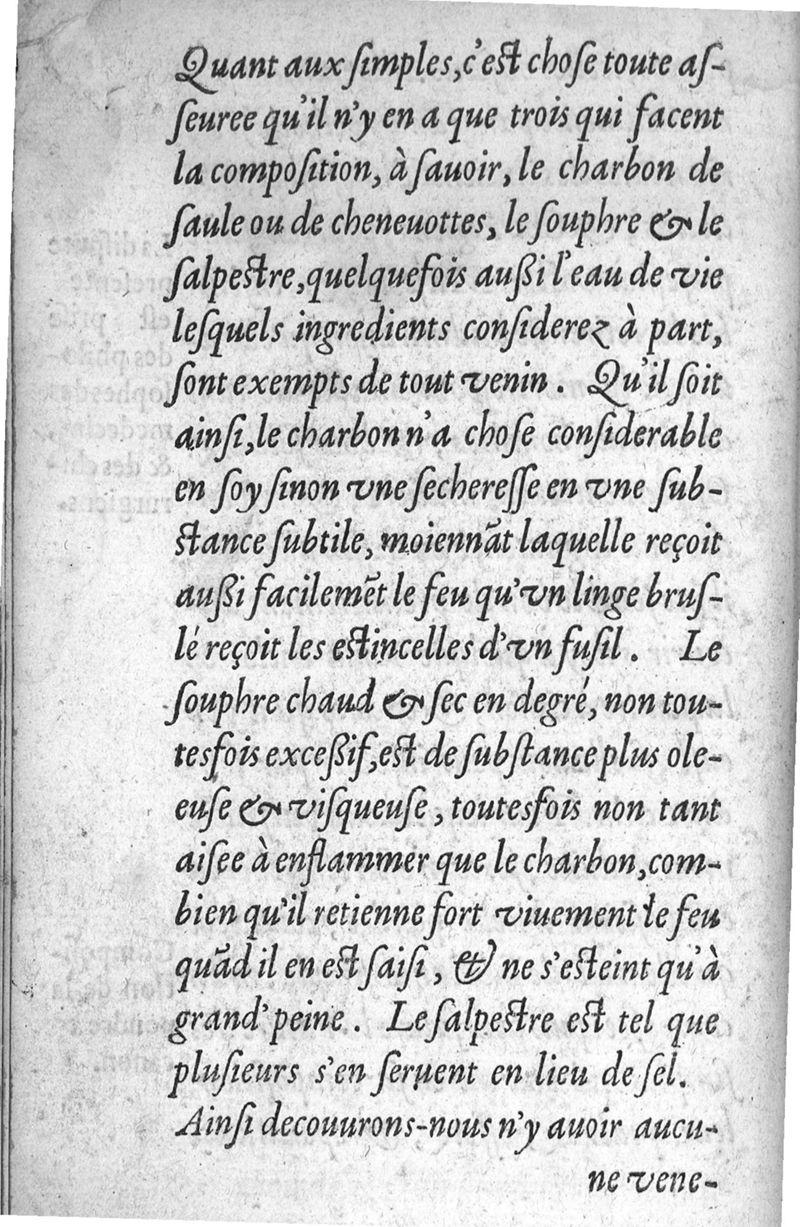 Quant aux ſimples, c'eſt choſe toute aſ-
ſeuree qu'il n'y en a que trois qui facent
la compoſition, à ſauoir, le charbon de
ſaule ou de cheneuottes, le ſouphre & le
ſalpeſtre, quelquefois außi l'eau de vie
leſquels ingredients conſiderez à part,
ſont exempts de tout venin. Qu'il ſoit
ainſi, le charbon n'a choſe conſiderable
en ſoy ſinon vne ſechereſſe en vne ſub-
ſtance ſubtile, moiennãt laquelle reçoit
außi facilemẽt le feu qu'vn linge bruſ-
lé reçoit les eſtincelles d'vn fuſil. Le
ſouphre chaud & ſec en degré, non tou-
tesfois exceßif, eſt de ſubſtance plus ole-
euſe & viſqueuſe, toutesfois non tant
aiſee à enflammer que le charbon, com-
bien qu'il retienne fort viuement le feu
quãd il en eſt ſaiſi, & ne s'eſteint qu'à
grand' peine. Le ſalpeſtre eſt tel que
pluſieurs s'en ſeruent en lieu de ſel.
Ainſi decouurons-nous n'y auoir aucu-
ne vene-